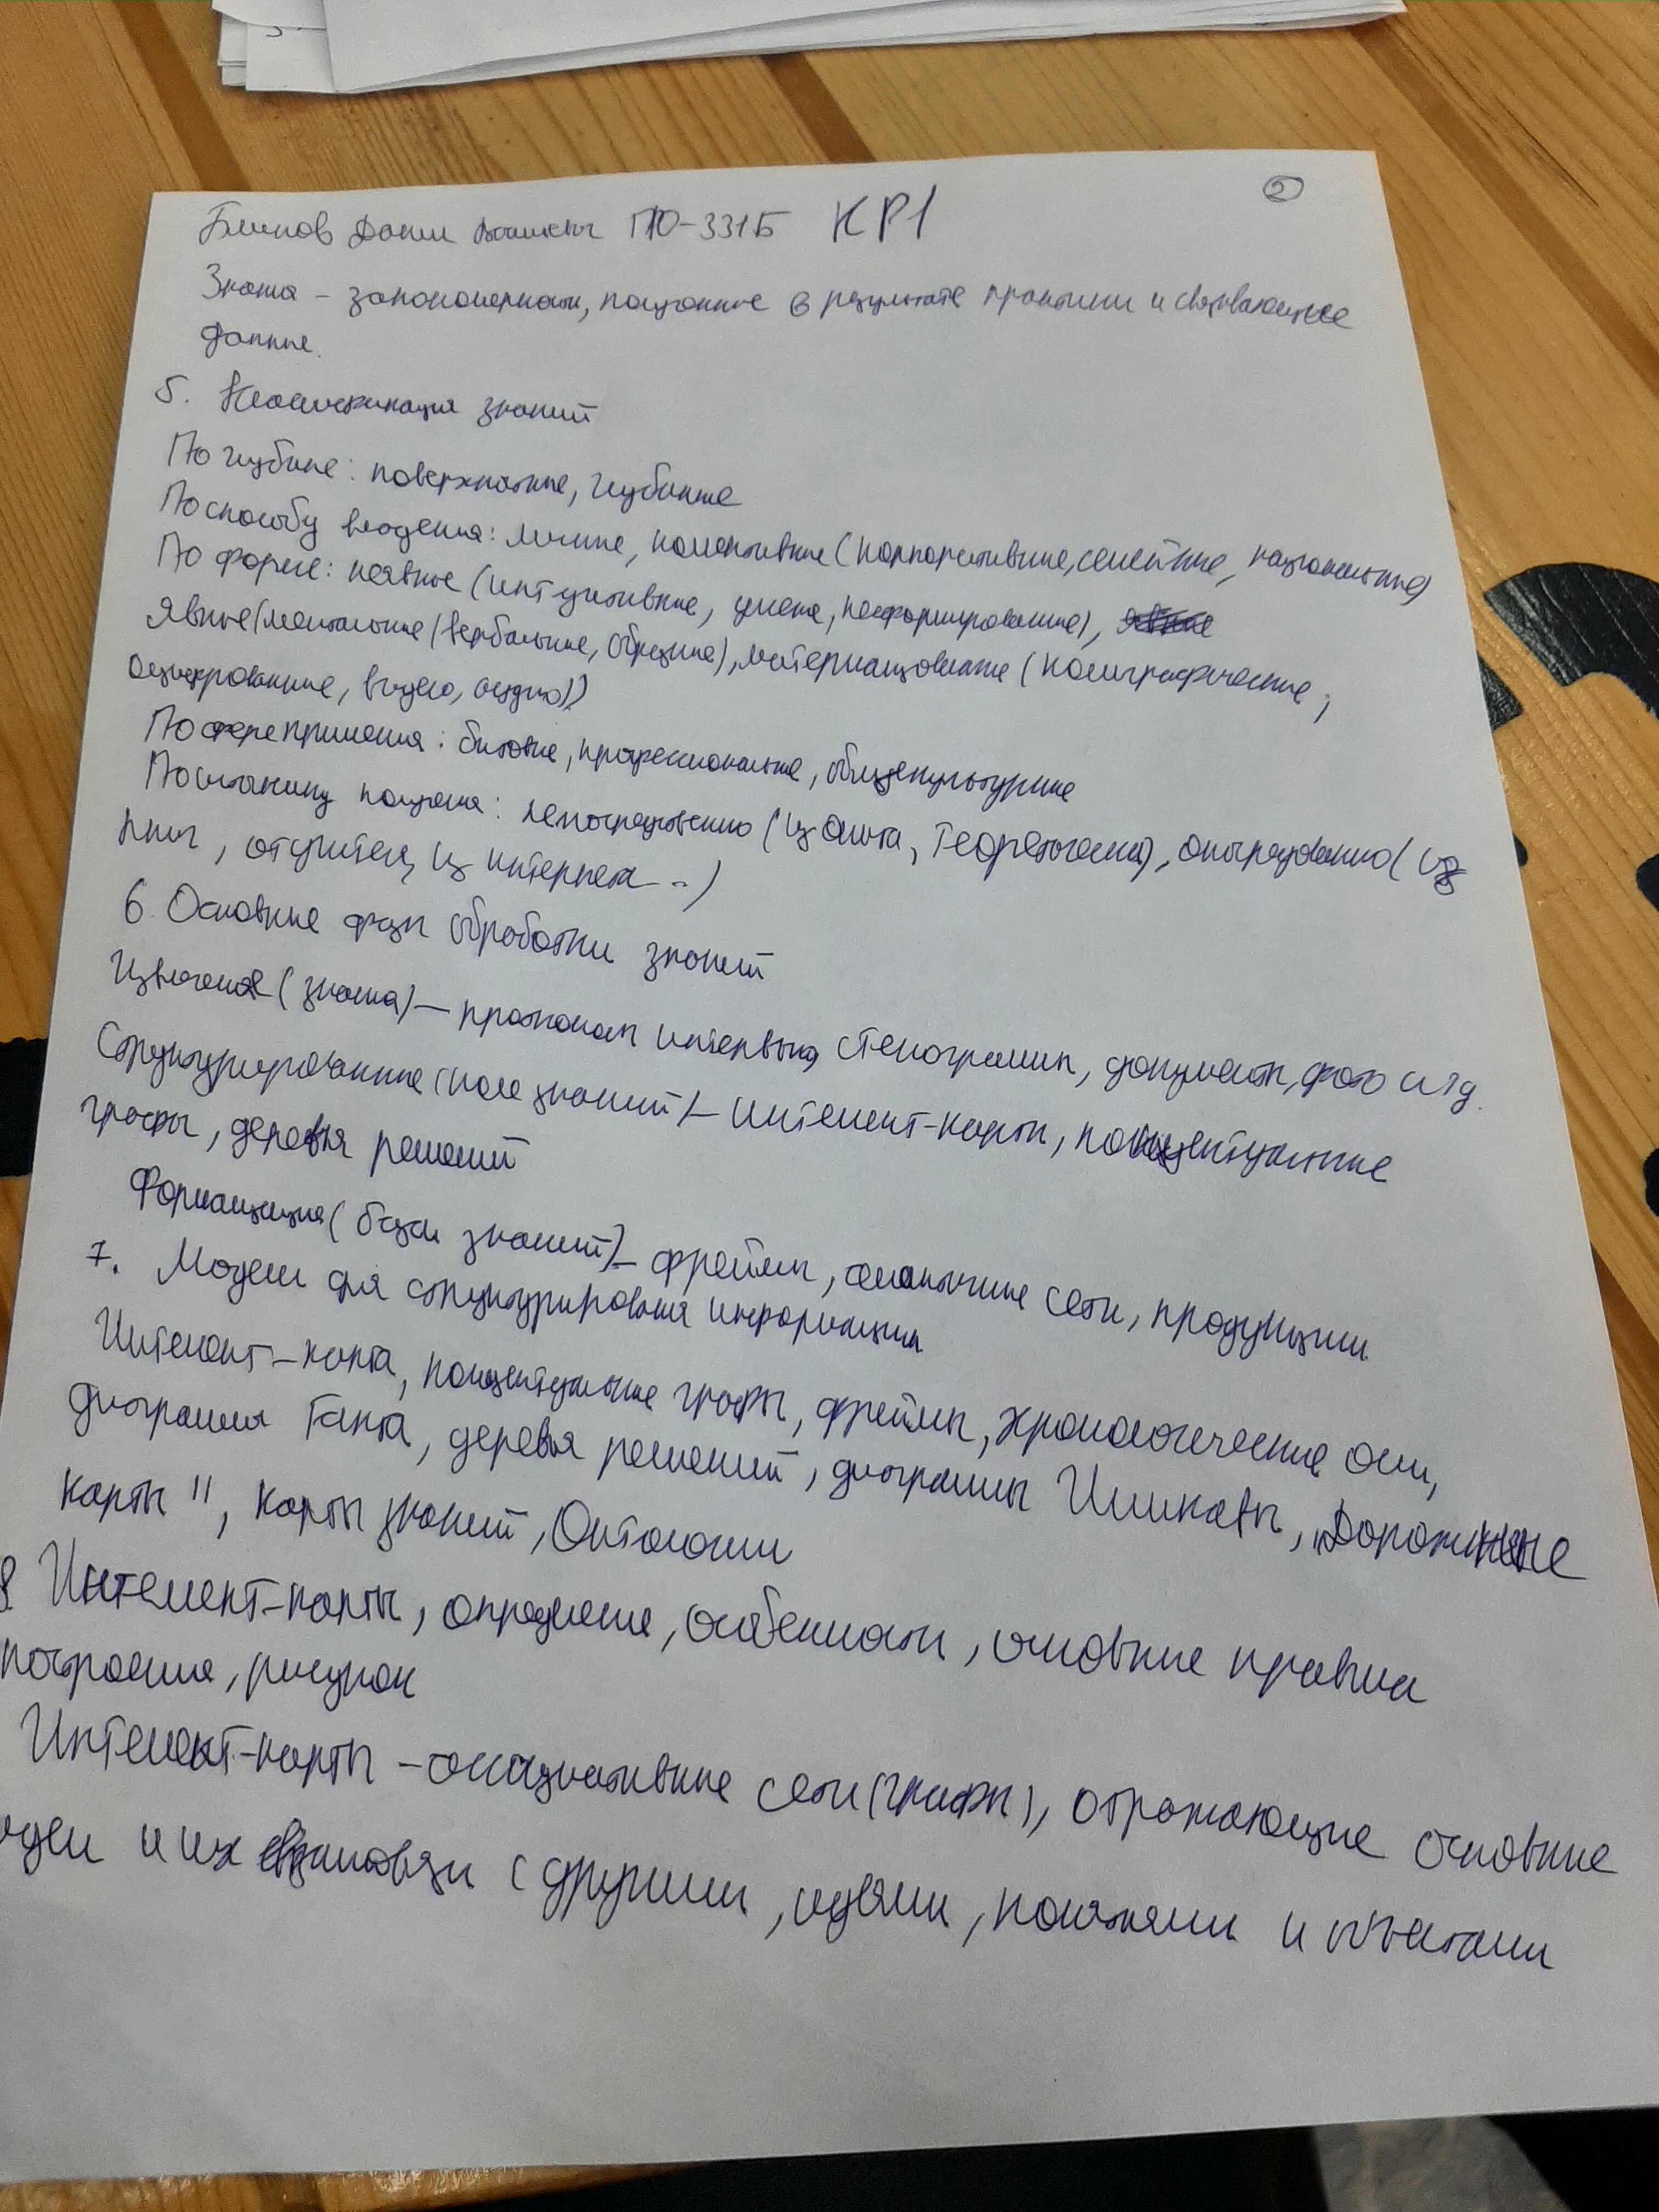 ②
ПО-331Б КР1
Знания – закономерности, полученные в результате практики и связывающие
данные.
5. Классификация знаний
По глубине: поверхностные, глубинные
По способу владения: личные, колективные (корпоративные, семейные, национальные)
По форме: неявные (интуитивные, умения, неформированные),
Явные (ментальные (вербальные, образные), материализованные (полиграфические,
оцифрованные, видео, аудио))
По сфере применения: бытовые, профессиональные, общекультурные
По получения: непосредственно (из опыта, теоретически), опосредованно (из
книг, от учителя, из интернета..)
6. Основные фазы обработки знаний
Извлечение (знания) – протоколы интервью, стенограммы, документы, фото и тд.
Структурированные (поле знаний) – интелект-карты, концептуальные
графы, деревья решений
Формализация (базы знаний) – фреймы, семантичные сети, продукции
7. Модели для структурирования информации
Интелект-карта, концептуальные графы, фреймы, хронологические оси,
диаграмма Ганта, деревья решений, диаграммы Ишикавы, „Дорожные
карты", карты знаний, Онтологии
8. Интелект-карты, определение, особенности, основные правила
построения, рисунок
Интелект-карты – ассоциативные сети (графы), отражающие основные
идеи и их взаимовязи с другими, идеями, понятиями и объектами